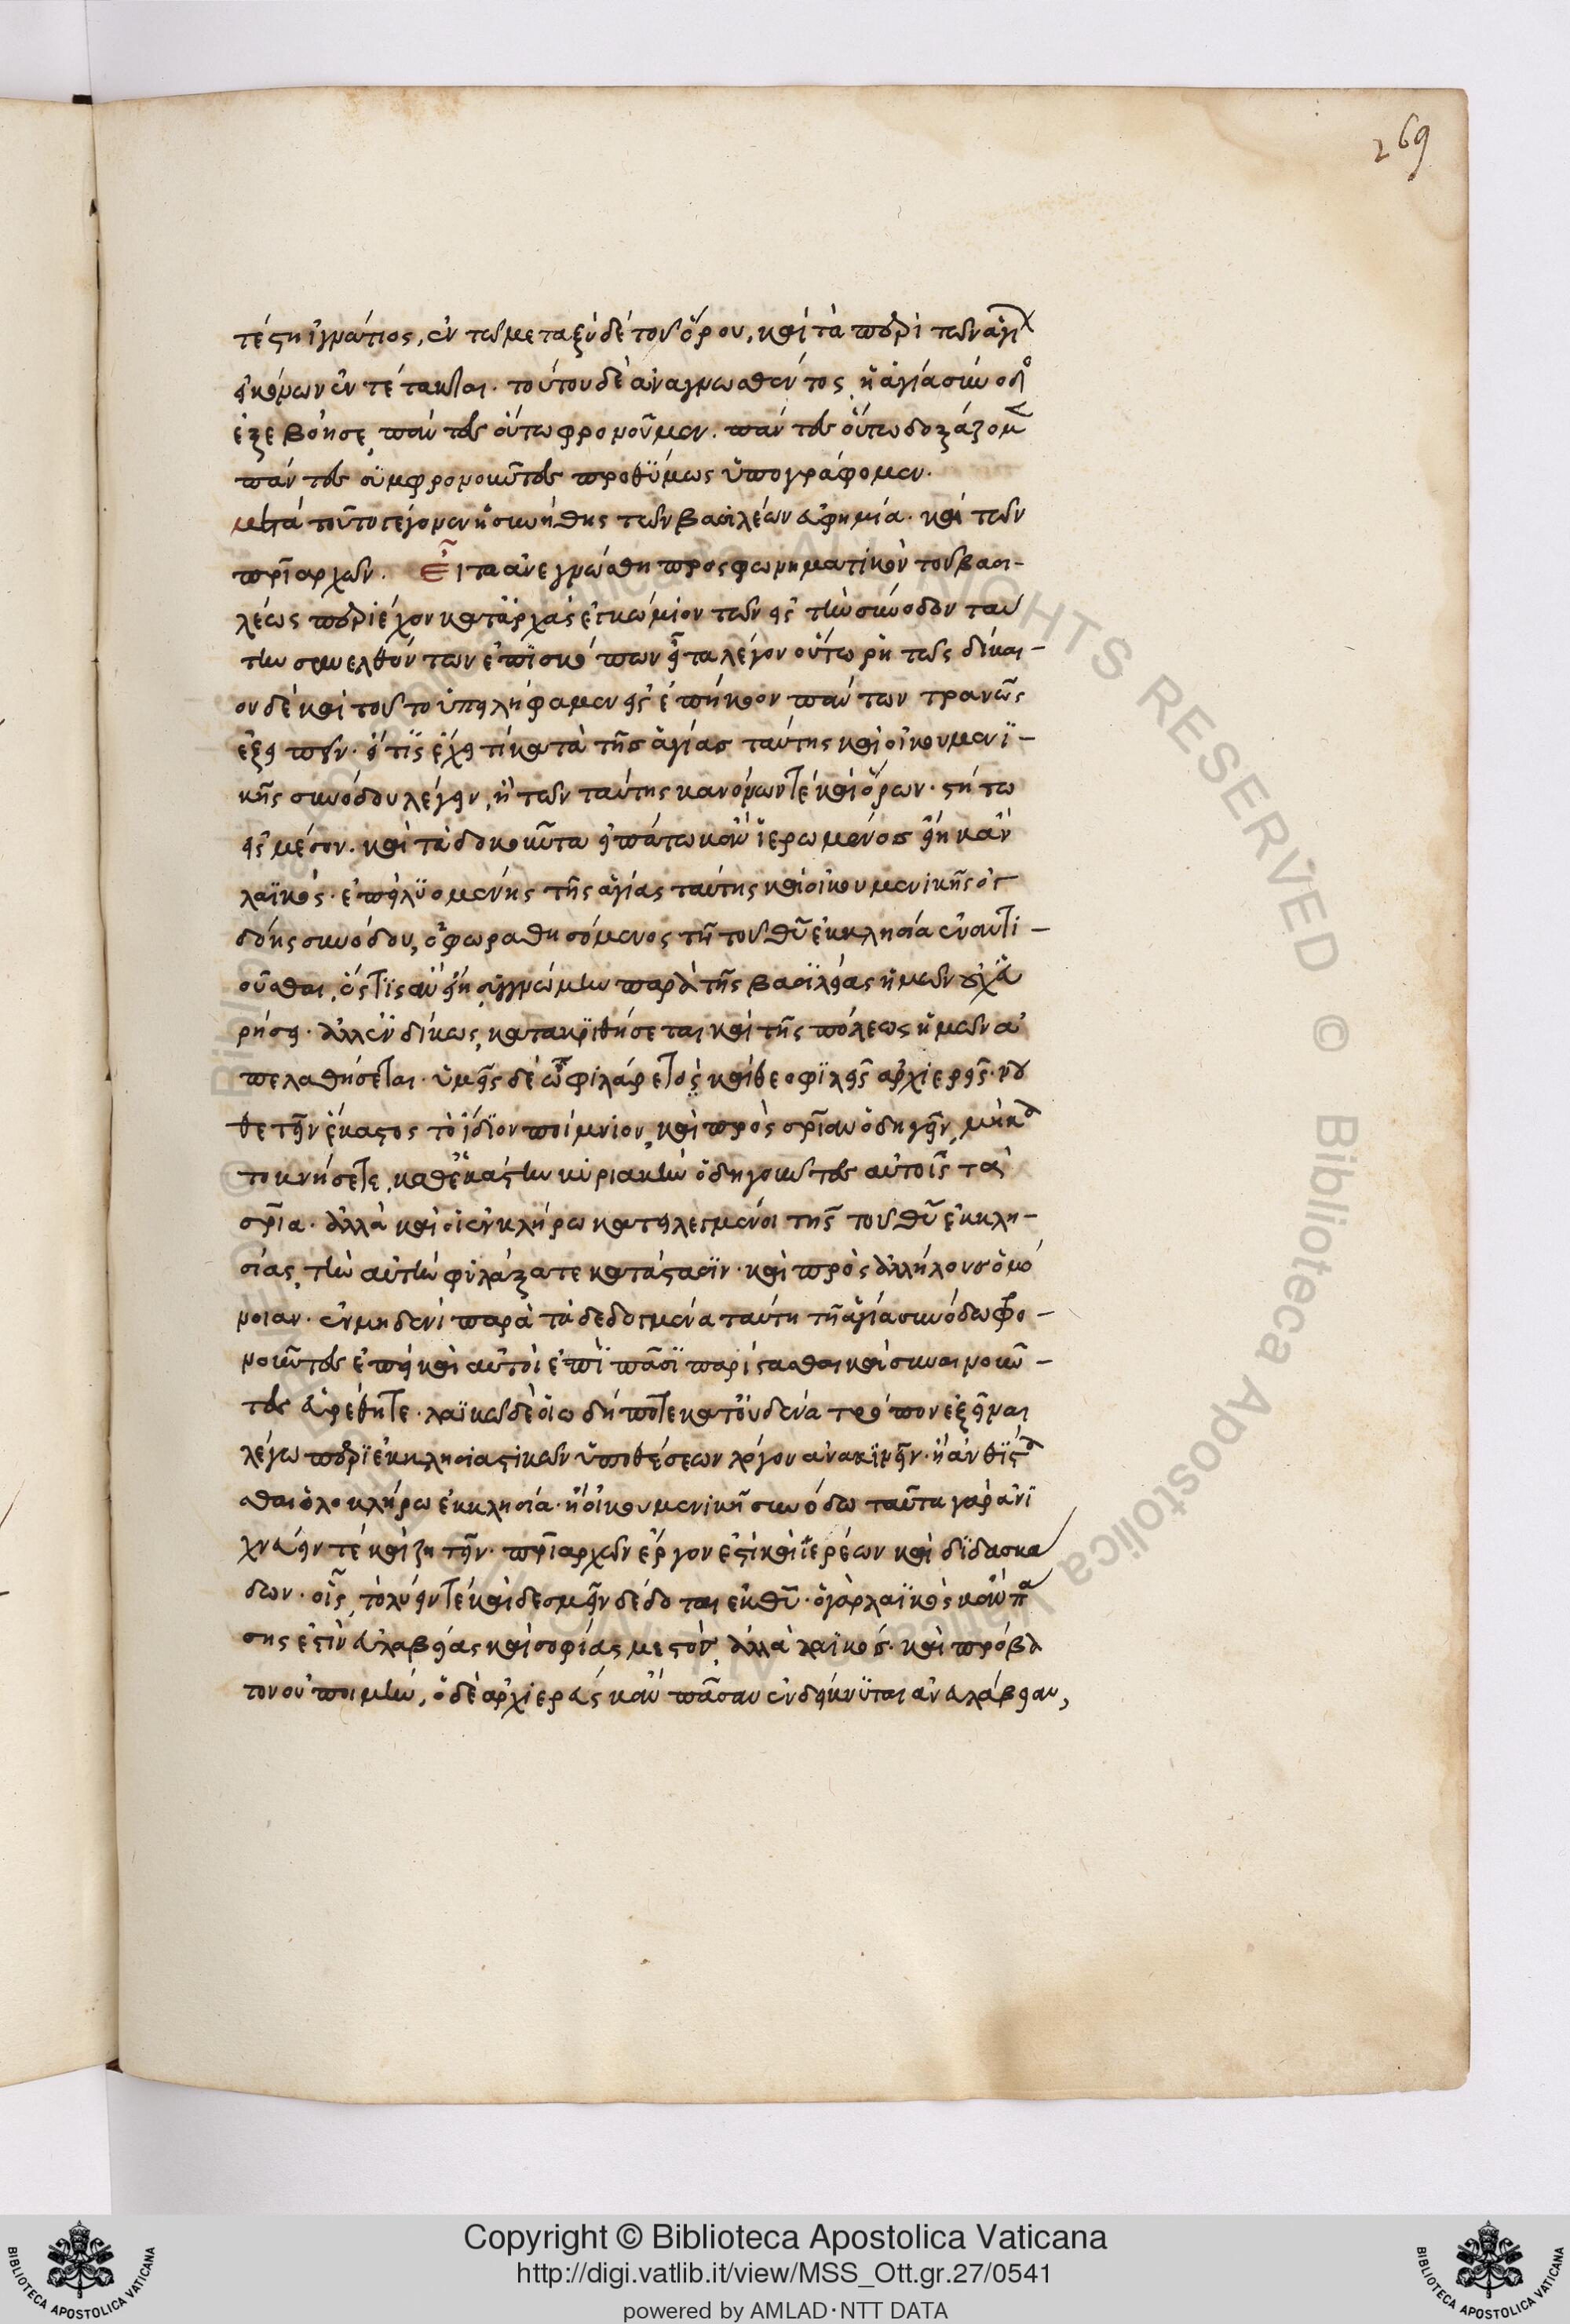 269
τέστη ἰγνάτιος, ἐν τῶ μεταξὺ δὲ τοῦ ὅρου, καὶ τὰ περὶ τῶν ἁγί
εἰκόνων ἐντέτακται. τούτου δὲ ἀναγνωσθέντος, ἡ ἁγία σύνοδο
ἐξεβόησε, πάντες οὕτω φρονοῦμεν. πάντες οὕτω δοξάζομ
πάντες συμφρονοῦντες προθύμως ὑπογράφομεν.
μετὰ τοῦτο γέγονεν ἡ συνήθης τῶν βασιλέων εὐφημία. καὶ τῶν
πριαρχῶν. Εἶτα ἀνεγνώσθη προσφωνηματικὸν τοῦ βασι-
λέως περιέχον κατἀρχὰς ἐγκώμιον τῶν εἰς τὴν σύνοδον ταύ
την συνελθόντων ἐπισκόπων εἶτα λέγον οὕτω ρητῶς δίκαι-
ον δὲ καὶ τοῦτο ὑπειλήφαμεν εἰς ἐπήκοον πάντων τρανῶς
ἐξειπεῖν. εἴ τις ἔχει τί κατὰ τῆς ἁγίας ταύτης καὶ οἰκουμενι-
κῆς συνόδου λέγειν, ἢ τῶν ταύτης κανόνων τὲ καὶ ὅρων. στήτω
εἰς μέσον. καὶ τὰ δοκοῦντα εἰπάτω κἂν ἱερωμένος εἴη κἂν
λαϊκός. ἐπειλυομένης τῆς ἁγίας ταύτης καὶ οἰκουμενικῆς ὀγ
δόης συνόδου, ὁ φωραθησόμενος τῆ τοῦ θῦ ἐκκλησία ἐναντι-
οῦσθαι, ὅστις ἂν εἴη, συγγνώμην παρὰ τῆς βασιλείας ἡμῶν οὐχ εὑ
ρήσει. ἀλλ' ἐνδίκως, κατακριθήσεται καὶ τῆς πόλεως ἡμῶν ἀ
πελαθήσεται. ὑμεῖς δὲ ὦ φιλάρετος καὶ θεοφιλεῖς ἀρχιερεῖς. νου
θετεῖν ἕκαστος τὸ ἴδιον ποίμνιον, καὶ πρὸς σρίαν ὁδηγεῖν, μὴ κα
τοκνήσετε, καθ' ἑκάστην κυριακὴν ὁδηγοῦντες αὐτοῖς τὰ
σρία. ἀλλὰ καὶ οἱ ἐν κλήρω κατειλεγμένοι τῆς τοῦ θῦ ἐκκλη-
σίας, τὴν αὐτὴν φυλάξατε κατάστασιν. καὶ πρὸς ἀλλήλους ὁμό
νοιαν. ἐν μηδενὶ παρὰ τὰ δεδογμένα ταύτη τῆ ἁγία συνόδω φρο-
νοῦντες ἐπεὶ καὶ αὐτοὶ ἐπὶ πᾶσι παρίστασθαι καὶ συναινοῦν-
τες εὑρέθητε. λαϊκῶ δὲ οἵω δήποτε κατ' οὐδένα τρόπον ἐξεῖναι
λέγω περὶ ἐκκλησιαστικῶν ὑποθέσεων λόγον ἀνακινεῖν. ἢ ἀνθίστα
σθαι ὁλοκλήρω ἐκκλησία. ἢ οἰκουμενικῆ συνόδω ταῦτα γὰρ ἀνι
χνεύειν τὲ καὶ ζητεῖν. πριαρχῶν ἔργον ἐστὶ καὶ ἱερέων καὶ διδασκα
λων. οἷς, τὸ λύειν τὲ καὶ δεσμεῖν δέδοται ἐκ θῦ. ὁ γὰρ λαϊκὸς κἂν πά
σης ἐστὶν εὐλαβείας καὶ σοφίας μεστός, ἀλλὰ λαϊκός. καὶ πρόβα
τον οὐ ποιμήν, ὁ δὲ ἀρχιερεὺς κἂν πᾶσαν ἐνδείκνυται ἀνευλάβειαν,
Copyright © Biblioteca Apostolica Vaticana
http://digi.vatlib.it/view/MSS_Ott.gr.27/0541
powered by AMLAD·NTT DATA